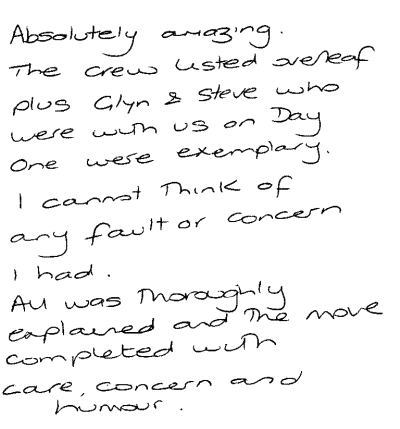 Absolutely amazing.
The crew listed overleaf
plus Glyn & Steve who
were with us on Day
One were exemplary.
I cannot Think of
any fault or concern
I had.
All was Thoroughly
explained and The move
completed with
care, concern and
humour.